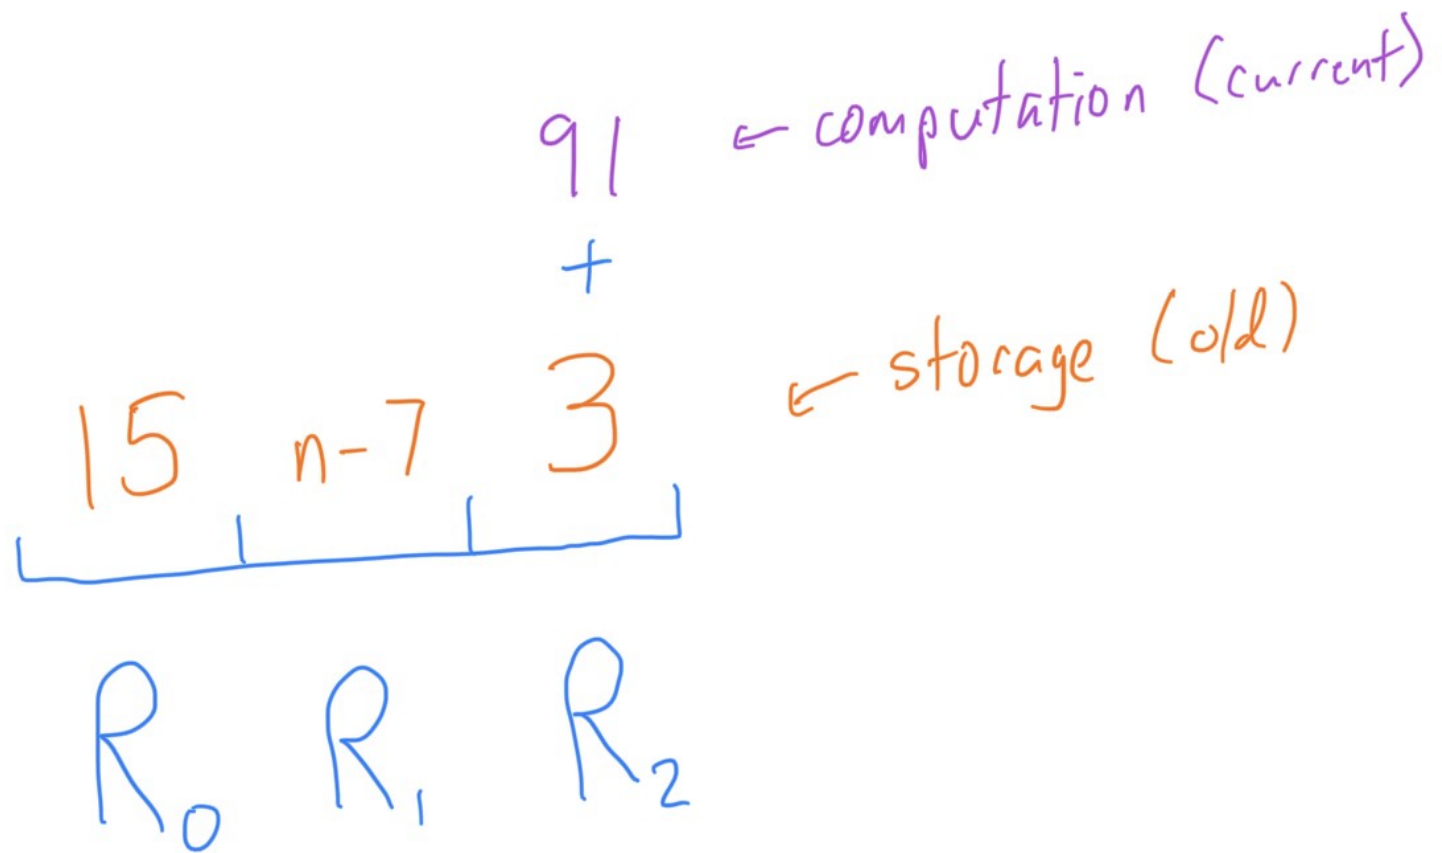 91 ← computation (current)
+
15 n-7 3 ← storage (old)
R₀ R₁ R₂